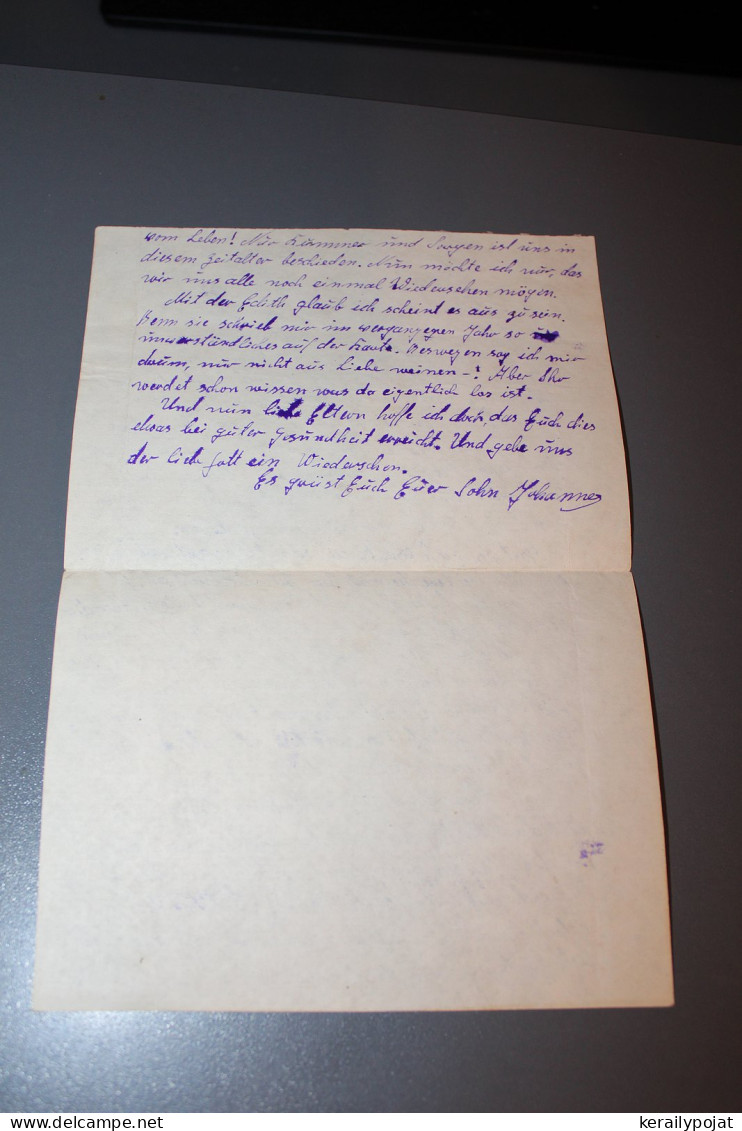 vom Leben! Nur Kummer und Sorgen ist uns in
diesem Zeitalter beschieden. Nun möchte ich nur, das
wir uns alle noch einmal Wiedersehen mögen.
Mit der Edith glaub ich scheint es aus zu sein.
Denn sie schrieb mir im vergangenen Jahr so
unverständliches auf der Karte. Deswegen sag ich mir
drum, nur nicht aus Liebe weinen -! Aber Ihr
werdet schon wissen was da eigentlich los ist.
Und nun liebe Eltern hoffe ich doch, das Euch dies
etwas bei guter Gesundheit erreicht. Und gebe uns
der liebe Gott ein Wiedersehen.
Es grüst Euch Euer Sohn Johannes
© www.delcampe.net
kerailypojat